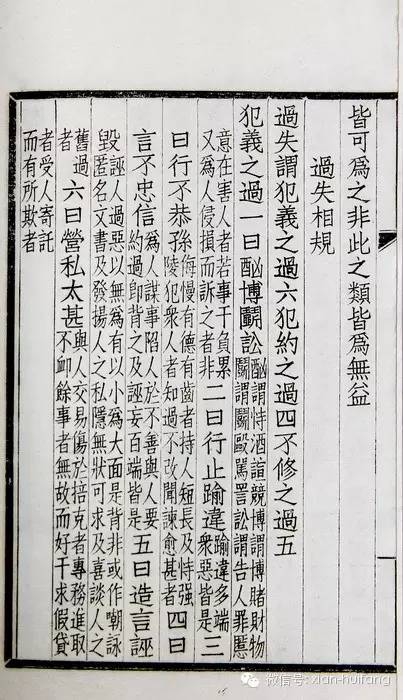 皆可為之非此之類皆為無益
過失相規
過失謂犯義之過六犯約之過四不修之過五
犯義之過一曰酗博鬭訟酗謂恃酒諠競博謂博賭財物鬭謂鬭毆罵詈訟謂告人罪慝
意在害人者若事干負累又為人侵損而訴之者非二曰行止踰違踰違多端衆惡皆是三
曰行不恭孫侮慢有德有齒者持人短長及恃強陵犯衆人者知過不改聞諫愈甚者四曰
言不忠信為人謀事陷人於不善與人要約過即背之及誣妄百端皆是五曰造言誣
毀誣人過惡以無為有以小為大面是背非或作嘲詠匿名文書及發揚人之私隱無狀可求及喜談人之
舊過者六曰營私太甚與人交易傷於掊克者專務進取不卹餘事者無故而好干求假貸
者受人寄託而有所欺者
微信号: xian-huifang